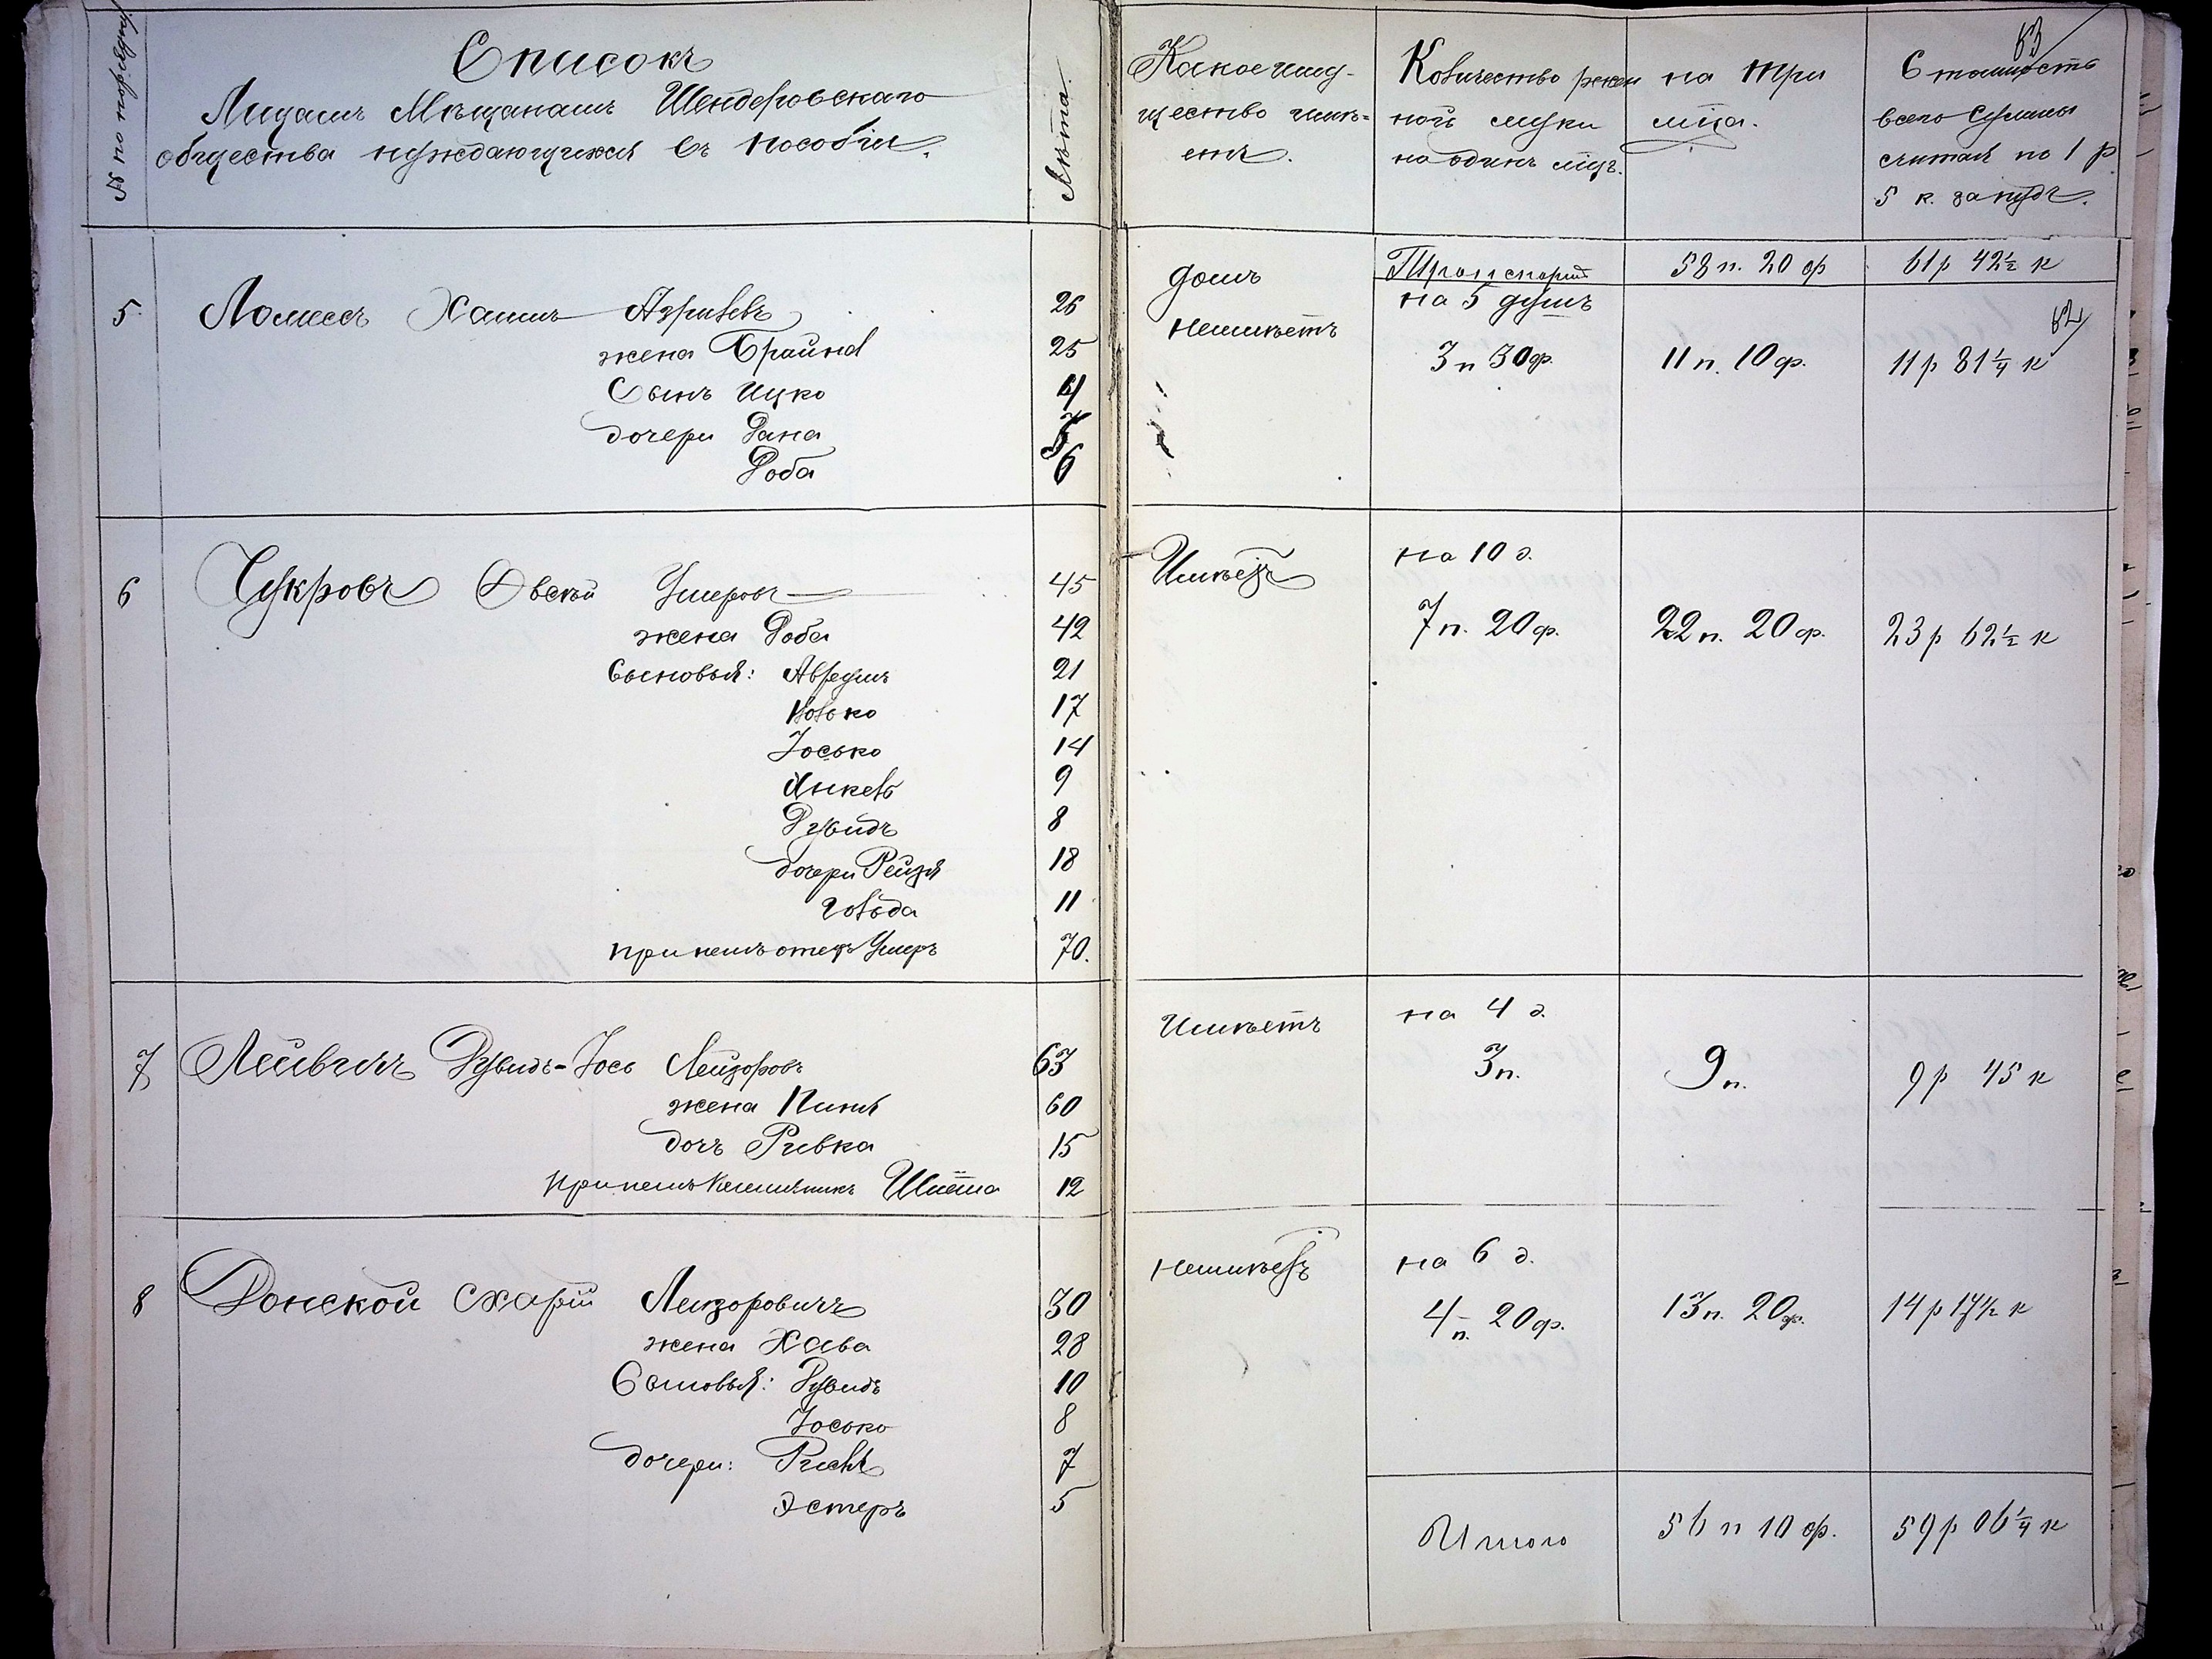 № по порядку
Списокъ
Лицамъ Мѣщанамъ Шендеровскаго
общества нуждающимся въ пособіи.
Лѣта.
Какое иму-
щество имѣ-
етъ.
Количество ржан
ной муки
на одинъ мцъ.
на три
мца.
63
Стоимость
всего Суммы
считая по 1 р
5 к. за пудъ.
Транспортъ 58 п. 20 ф 61 р 42½ к
5. Хаимъ 26 домъ на 5 душъ
62
жена Брайна 25 неимѣетъ 3 п 30 ф. 11 п. 10 ф. 11 р 81¼ к
Сынъ Ицко 4
дочери Дана
Доба 6
6 Цукровъ Овсѣй Умеровъ 45 Имѣетъ на 10 д.
жена Доба 42 7 п. 20 ф. 22 п. 20 ф. 23 р 62½ к
Сыновья: Аврумъ 21
Волько 17
Іосько 14
Янкель 9
Дувидъ 8
дочери Рейзя 18
Гольда 11
при немъ отецъ Умеръ 70.
7 Дувидъ-Іось Лейзоровъ 63 Имѣетъ на 4 д. 3 п. 9 п. 9 р 45 к
жена 60
дочь Ривка 15
при немъ племянникъ 12
8 Донской Схарій Лейзоровичъ 30 неимѣетъ на 6 д. 4 п. 20 ф. 13 п. 20 ф. 14 р 17½ к
жена Хава 28
Сыновья: Дувидъ 10
Іосько 8
дочери: 7
Эстеръ 5
Итого 56 п 10 ф. 59 р 06¼ к